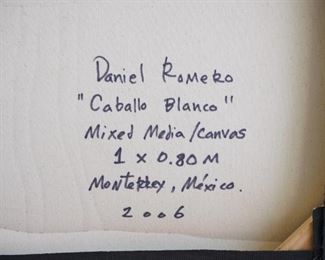 Daniel Romero
"Caballo Blanco"
Mixed Media/Canvas
1 x 0.80 M
Monterrey, México.
2006